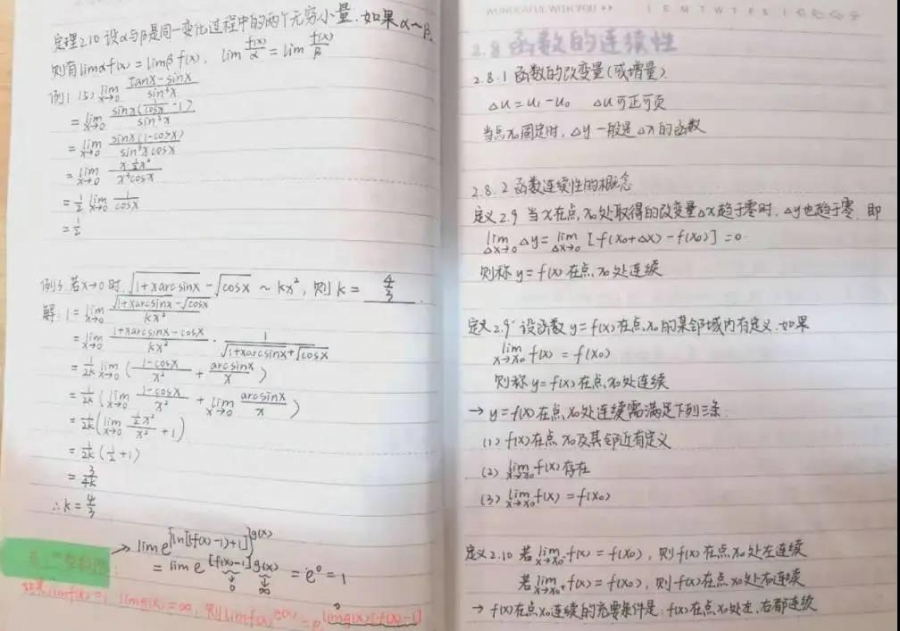 定理2.10 设α与β是同一变化过程中的两个无穷小量.如果α~β,
则有 limαf(x) = limβf(x), lim f(x)/α = lim f(x)/β
例1.(5) lim x→0 (tanx-sinx)/sin³x
= lim x→0 sinx(1/cosx -1)/sin³x
= lim x→0 sinx(1-cosx)/sin³xcosx
= lim x→0 x·½x²/x³cosx
= ½ lim x→0 1/cosx
= ½
例3.若x→0时,√(1+xarcsinx) - √cosx ~ kx², 则k = 4/3.
解: 1 = lim x→0 (√(1+xarcsinx) - √cosx)/kx²
= lim x→0 (1+xarcsinx-cosx)/kx² · 1/(√(1+xarcsinx)+√cosx)
= 1/2k lim x→0 ( (1-cosx)/x² + arcsinx/x )
= 1/2k ( lim x→0 (1-cosx)/x² + lim x→0 arcsinx/x )
= 1/2k ( lim x→0 ½x²/x² + 1 )
= 1/2k (½+1)
= 3/4k
∴k = 4/3
→ lim e^{ln[(f(x)-1)+1]}g(x)
= lim e^[f(x)-1]g(x) = e⁰ = 1
↓ ↓
0 ∞
limf(x)=1, limg(x)=∞, 则limf(x)^g(x) = e^limg(x)[f(x)-1]
WONDERFUL WITH YOU
2.8 函数的连续性
2.8.1 函数的改变量(或增量)
Δu = u₁ - u₀ Δu可正可负
当点x₀固定时, Δy一般是Δx的函数
2.8.2 函数连续性的概念
定义2.9 当x在点x₀处取得的改变量Δx趋于零时, Δy也趋于零,即
lim Δx→0 Δy = lim Δx→0 [f(x₀+Δx) - f(x₀)] = 0
则称y=f(x)在点x₀处连续
定义2.9' 设函数y=f(x)在点x₀的某邻域内有定义.如果
lim x→x₀ f(x) = f(x₀)
则称y=f(x)在点x₀处连续
→ y=f(x)在点x₀处连续需满足下列三条
(1) f(x)在点x₀及其邻近有定义
(2) lim x→x₀ f(x)存在
(3) lim x→x₀ f(x) = f(x₀)
定义2.10 若lim x→x₀⁻ f(x) = f(x₀), 则f(x)在点x₀处左连续
若lim x→x₀⁺ f(x) = f(x₀), 则f(x)在点x₀处右连续
→ f(x)在点x₀连续的充要条件是, f(x)在点x₀处左、右都连续